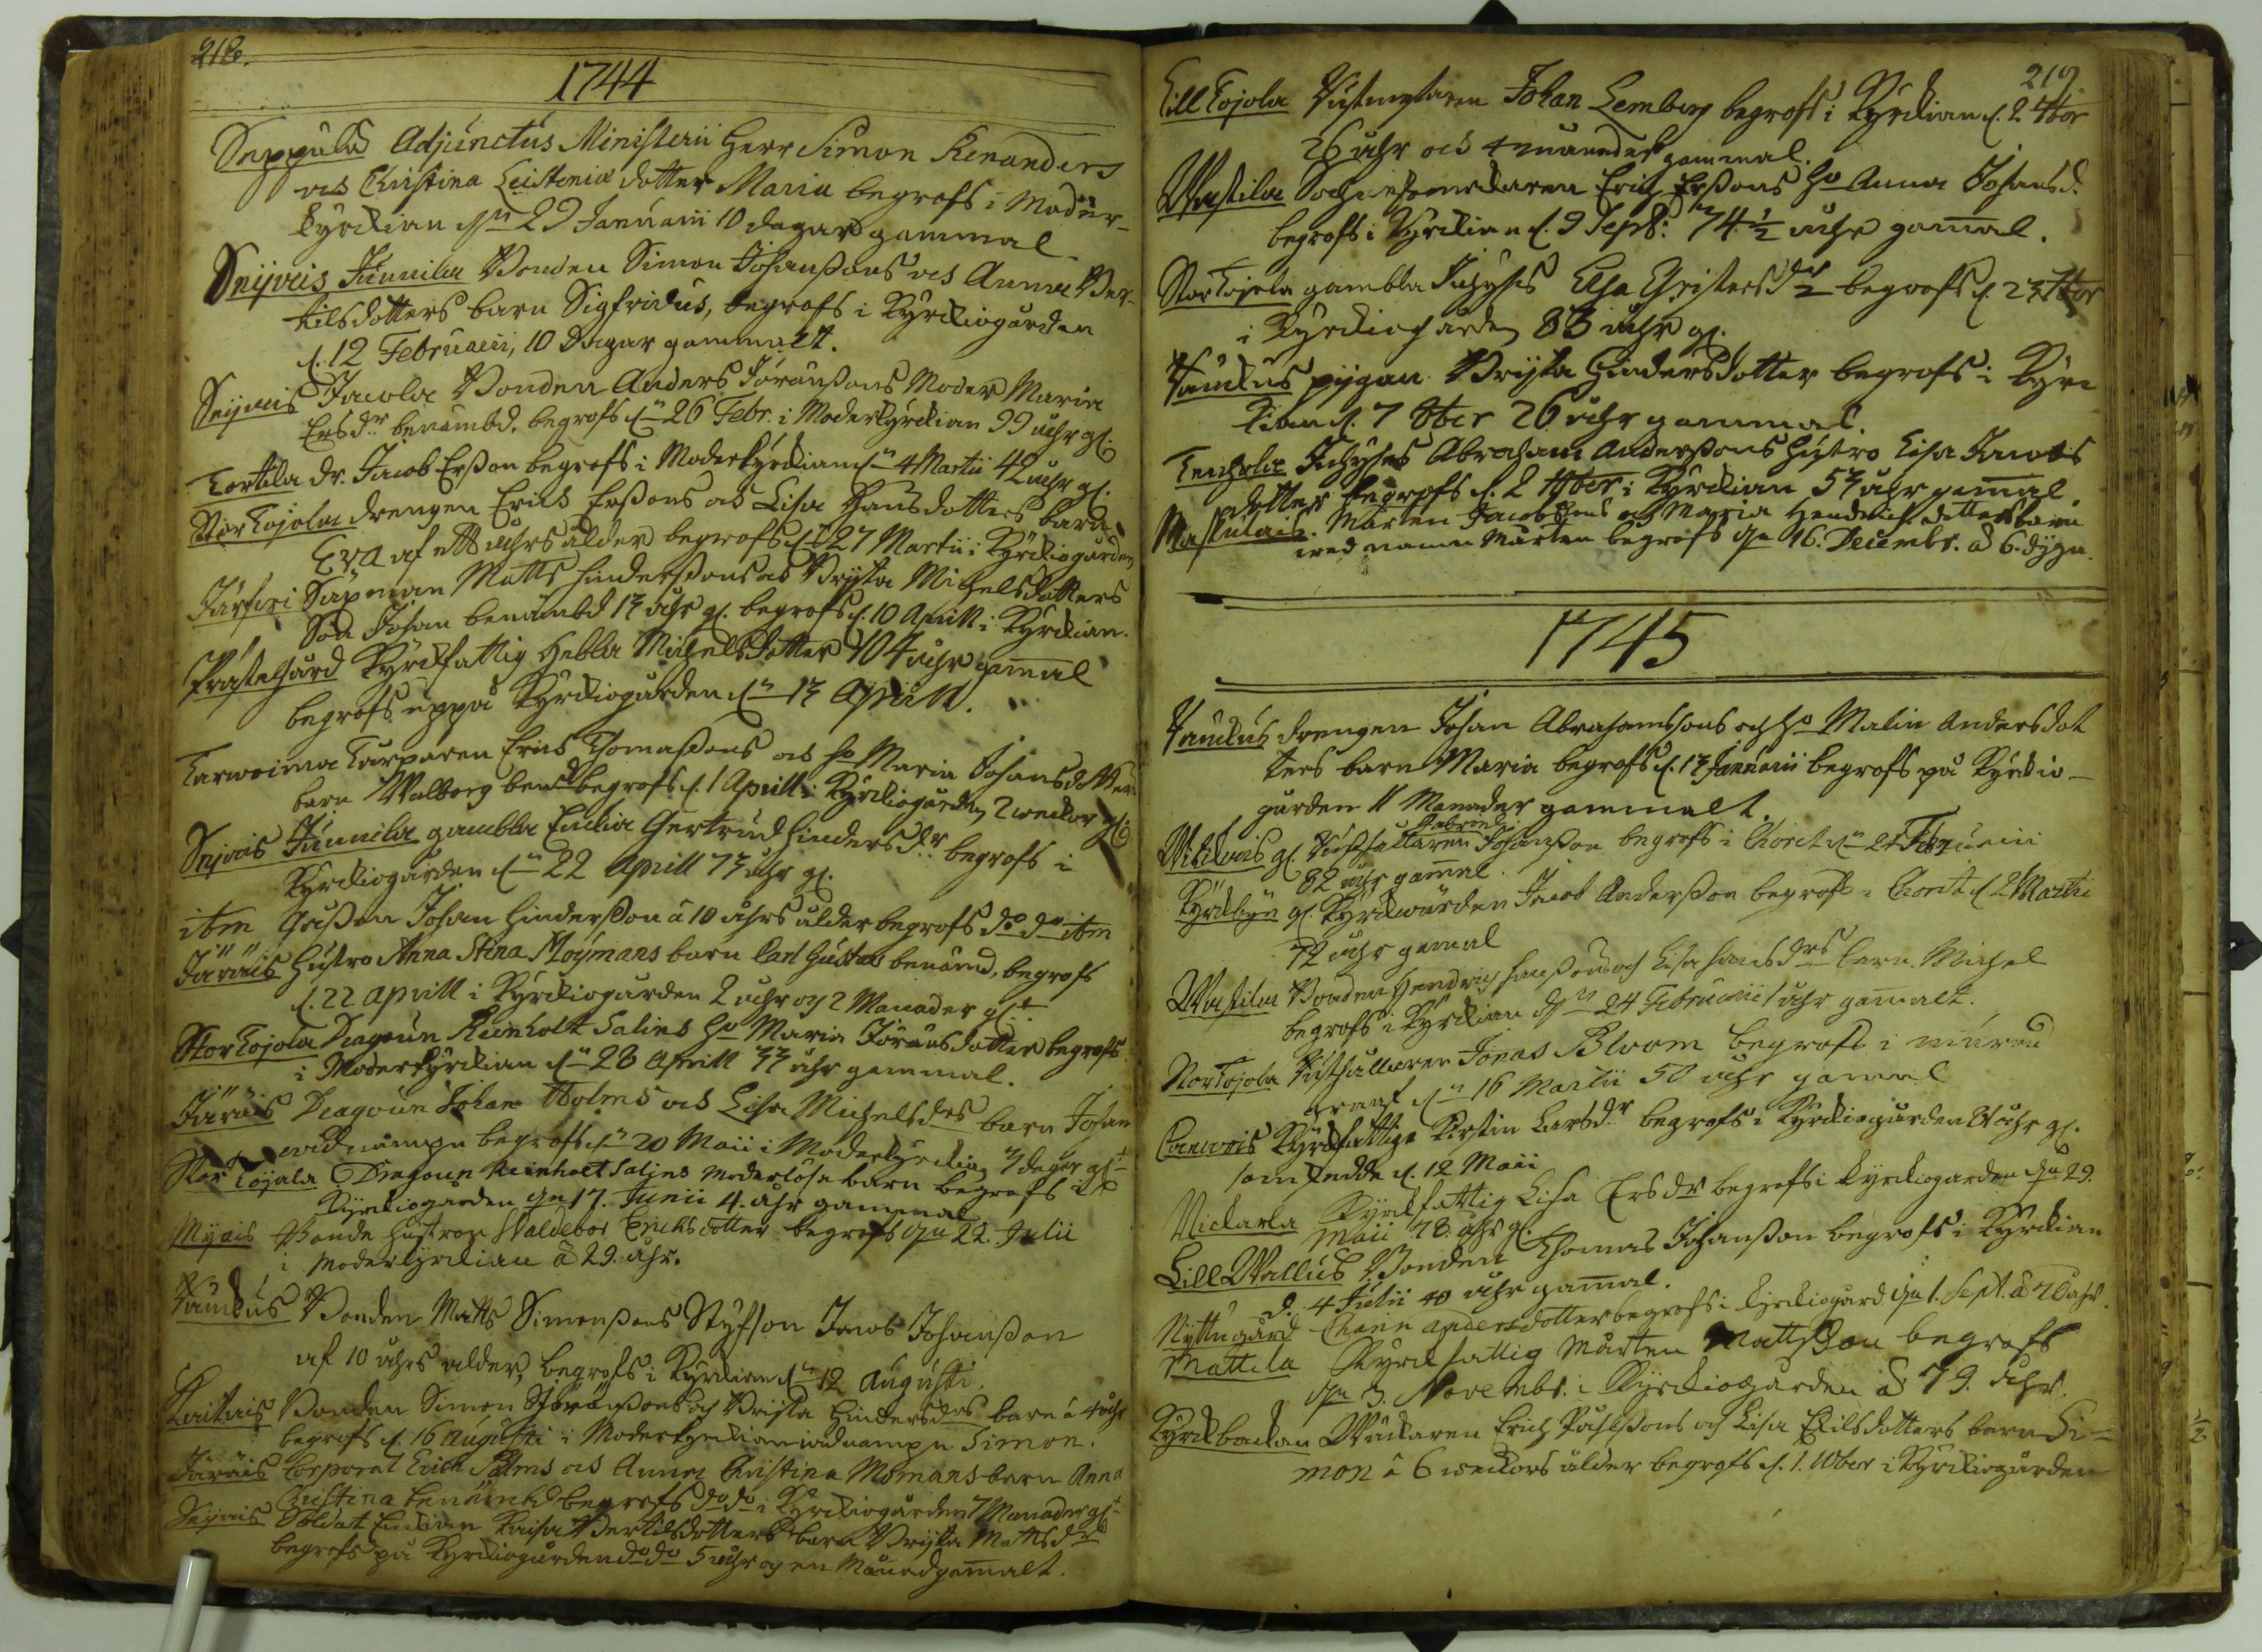 218.
1744
Seppälä Adjunctus Ministerii Herr Simon Renanders
och Christina Leistenia dotter Maria begrofs i Moder-
kyrckian den 29 Januarii 10 dagar gammal
Snijvais Junnila Bonden Simon Johanßons och Anna Ber-
tilsdotters barn Sigfridus, begrofs i Kyrckiogården
d. 12 Februarii, 10 dagar gammalt.
Snijvais Jacola Bonden Anders Jöranßons Moder Maria
Ersdr benämbd, begrofs dn 26 Febr. i Moderkyrckian 99 åhr gl.
Tortila dr. Jacob Erßon begrofs i Moderkyrckian dn 4 Martii 42 åhr gl.
StorTojola drengen Erics Erßons och Lisa Hansdotters barn
Eva af ett åhrs ålder begrofs dn 27 Martii i Kyrckiogården
Järferi Matts Hinderßons och Brijta Michelsdotters
Son Johan benämbd 13 åhr gl. begrofs d. 10 Aprill i Kyrckian.
Prästegård Kyrckfattig Hebla Michelsdotter 104 åhr gamal
begrofs uppå Kyrckiogården dn 13 Aprill.
Karwoima Torparen Erics Thomaßons och ho Maria Johansdotters
barn Walborg bend begrofs d. 1 Aprill i Kyrckiogården 2 weckor gl.
Snijvais Junnila gambla Enckia Gertrud Hindersdr begrofs i
Kyrckiogården dn 22 Aprill 73 åhr gl.
item Johan Hinderßon â 10 åhrs ålder begrofs do do item
Järäis Hustro Anna Stina Moijmans barn Carl Gustav benämd, begrofs
d. 22 Aprill i Kyrckiogården 2 åhr och 2 Månader glt
StorTojola Dragoun Reinholt Salins ho Maria Jöransdotter begrofs
i Moderkyrckian dn 28 Aprill 33 åhr gammal.
Järäis Dragoun Johan Holms och Lisa Michelsdrs barn Johan
wid nampn begrofs dn 20 Maii i Moderkyrckian 3 dagar glt
Stor Tojala Dragoun Reinholt Salins moderlösa barn begrofs i
Kyrckiogården den 17. Junii 4. åhr gammal
Myais Bonde hustron Waldebor Erichsdotter begrofs den 22. Julii
i moderkyrckian â 29. åhr.
Bonden Matts Simonßons Styfson Jacob Johanßon
af 10 åhrs ålder, begrofs i Kyrckian dn 12 Augusti.
Bonden Simon Jöranßons och Brijta Hindersdrs barn â 4 åhr
begrofs d. 16 Augusti i Moderkyrckian wid nampn Simon.
Järäis Corporal Erich Palms och Anna Christina Momans barn Anna
Christina benämbd begrofs do do i Kyrckiogården 7 Månader glt
Snijvais Soldat Enckian Kaisa Bertilsdotters barn Brijta Mattsdr
begrofs på Kyrckiogården do do 5 åhr och en Månad gamalt.
219
Lill Tojola Johan Lemberg begrofs i Kyrckian d. 2
26 åhr och 4 månader gammal.
Wastila Erich Erßons ho Anna Johansd.
begrofs i Kyrckian d. 9 Septb: 74 1/2 åhr gamal.
StorTojola gambla Lisa Christersdr begrofs d. 23
i Kyrckiogården 83 åhr gl.
pijgan Brijta Hindersdotter begrofs i Kyrc
kian d. 7 8ber 26 åhr gammal.
Abraham Anderßons hustro Lisa Jacobs
dotter begrofs d. 2 i Kyrckian 53 åhr gamal.
Mårten Jacobßons och Maria Hendrichsdotters barn
med namn Mårten begrofs den 16. Decembr. â 6. dygn.
1745
drengen Johan Abrahamßons och ho Malin Andersdot
ters barn Maria begrofs d. 13 Januarii begrofs på Kyrckio-
gården 11 Månader gammalt.
gl. Gabriel Johanßon begrofs i Choret dn 24 Februarii
82 åhr gamal.
Kyrckbyn gl. Kyrckwärden Jacob Anderßon begrofs i Choret d. 2 Martii
72 åhr gamal
Wastila Bonden Hendrich Hanßons och Lisa Hansdrs barn Michel
begrofs i Kyrckian den 24 Februarii 1 åhr gamalt.
StorTojola Jonas Bloom begrofs i murad
graf dn 16 Martii 50 åhr gammal
Kyrckfattiga Kirstin Larsdr begrofs i Kyrckiogården åhr gl.
som skedde d. 12 Maii
Nickarla Kyrckfattig Lisa Ersdr begrofs i Kyrckiogården den 29.
Maii 78. åhr gl.
LillWallus Bonden Thomas Johanßon begrofs i Kyrckian
d. 4 Julii 40 åhr gamal.
Nyttugård Andersdotter begrofs i Kyrckiogård den 1. Sept. â 70 åhr.
Mattila Kyrckfattig Mårten Mattßon begrofs
den 3. Novembr. i Kyrckiogården â 79. åhr.
Kyrckbackan Wäckaren Erich Påhlßons och Lisa Eskilsdotters barn Si-
mon â 6 weckors ålder begrofs d. 1. 10ber i Kyrckiogården